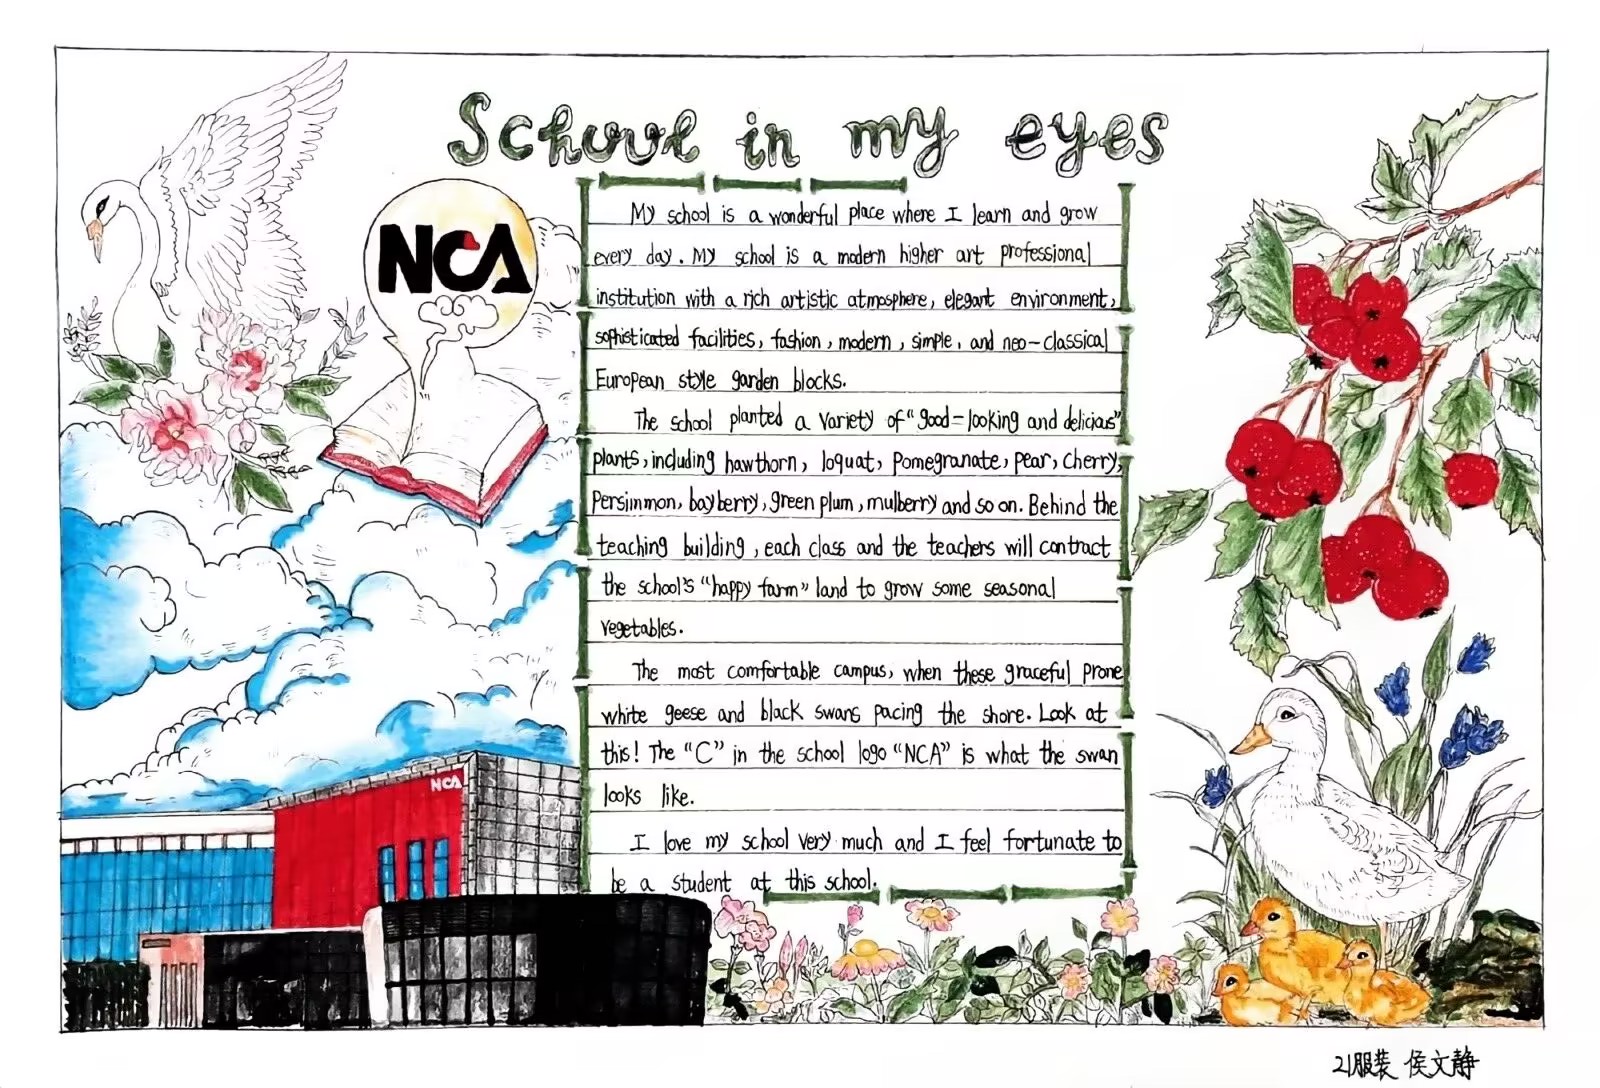 School in my eyes
NCA
My school is a wonderful place where I learn and grow
every day. My school is a modern higher art professional
institution with a rich artistic atmosphere, elegant environment,
sophisticated facilities, fashion, modern, simple, and neo-classical
European style garden blocks.
The school planted a variety of "good=looking and delicious"
plants, including hawthorn, loquat, pomegranate, pear, cherry,
Persimmon, bayberry, green plum, mulberry and so on. Behind the
teaching building, each class and the teachers will contract
the school's "happy farm" land to grow some seasonal
vegetables.
The most comfortable campus, when these graceful prone
white geese and black swans pacing the shore. Look at
this! The "C" in the school logo "NCA" is what the swan
looks like.
I love my school very much and I feel fortunate to
be a student at this school.
NCA
21服装 侯文静